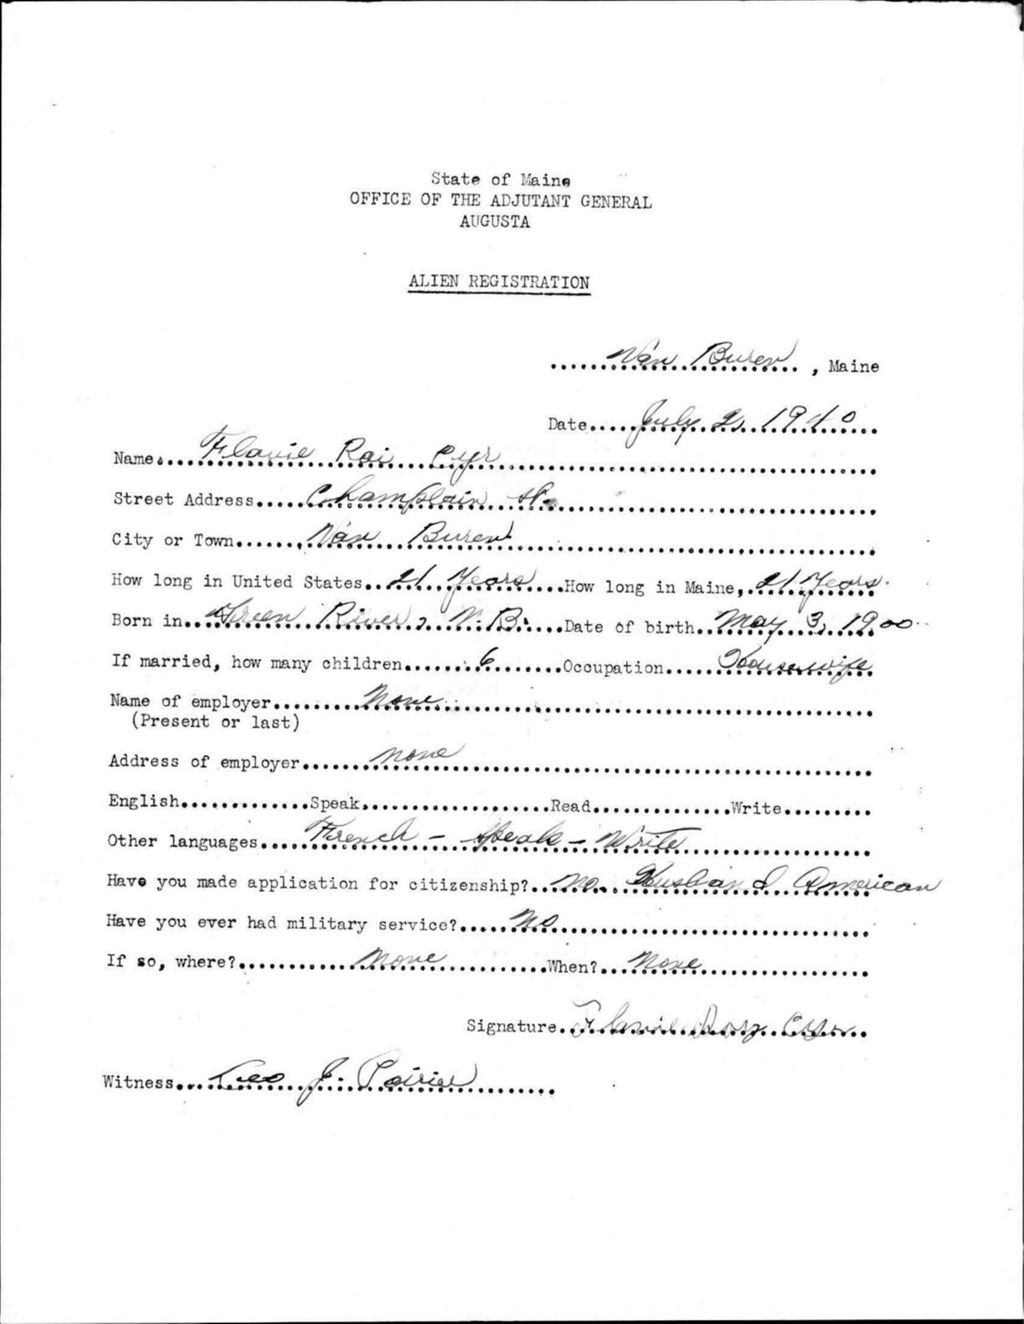 State of Maine
OFFICE OF THE ADJUTANT GENERAL
AUGUSTA
ALIEN REGISTRATION
Van Buren, Maine
Date July 2, 1940
Name Flavie Roi Cyr
Street Address Champlain St.
City or Town Van Buren
How long in United States 21 Years How long in Maine, 21 Years
Born in Green River, N.B. Date of birth May 3, 1900
If married, how many children 6 Occupation Housewife
Name of employer None
(Present or last)
Address of employer none
English Speak Read Write
Other languages French - Speak - Write
Have you made application for citizenship? No. Husband American
Have you ever had military service? No
If so, where? None When? None
Signature Flavie Roy Cyr
Witness Leo J. Poirier